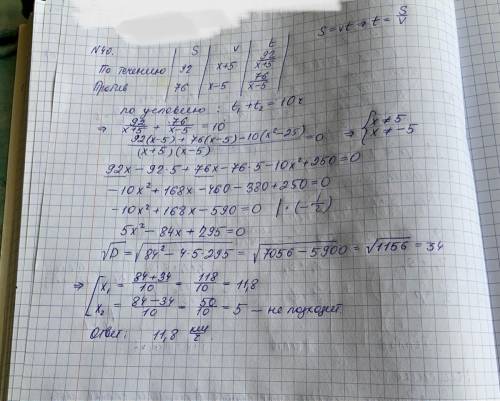 S = vt ⇒ t = S/v
N40. | S | v | t
По течению | 92 | x+5 | 92/(x+5)
Против | 76 | x-5 | 76/(x-5)
по условию: t₁ + t₂ = 10ч
⇒ 92/(x+5) + 76/(x-5) = 10
(92(x-5) + 76(x-5) - 10(x²-25))/((x+5)(x-5)) = 0 ⇒ { x ≠ 5
x ≠ -5
92x - 92·5 + 76x - 76·5 - 10x² + 250 = 0
-10x² + 168x - 460 - 380 + 250 = 0
-10x² + 168x - 590 = 0 | · (-1/2)
5x² - 84x + 295 = 0
√D = √(84² - 4·5·295) = √(7056 - 5900) = √1156 = 34
⇒ [ x₁ = (84+34)/10 = 118/10 = 11,8
x₂ = (84-34)/10 = 50/10 = 5 — не подходит
Ответ: 11,8 км/ч